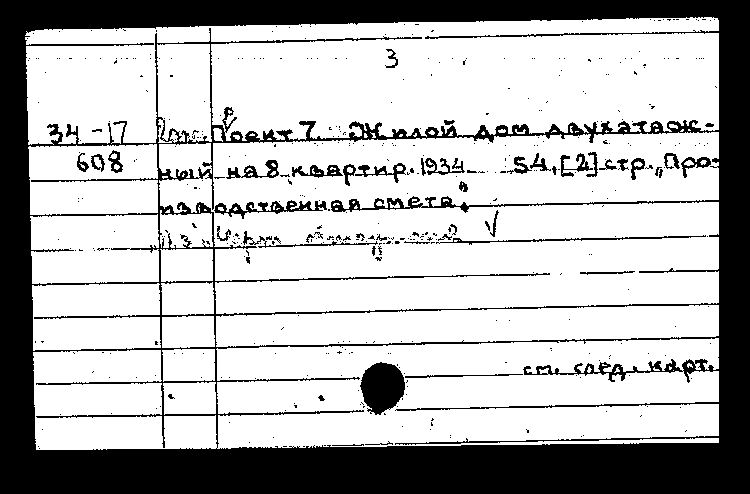 3
34-17 Проект 7. Жилой дом двухэтаж-
608 ный на 8 квартир. 1934 54, [2] стр. „Про-
изводственная смета"
см. след. карт.